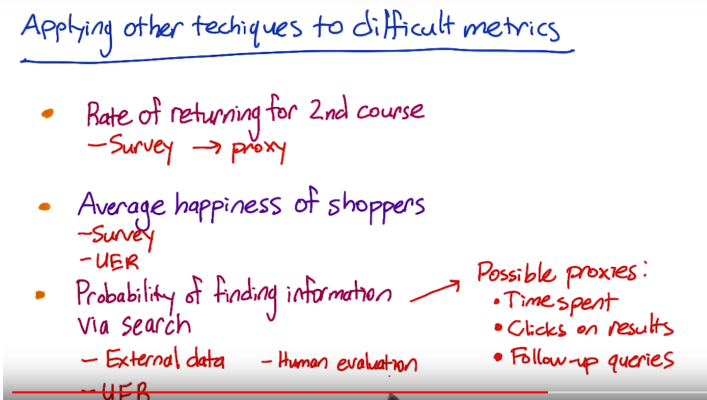 Applying other techiques to difficult metrics
• Rate of returning for 2nd course
- Survey → proxy
• Average happiness of shoppers
- Survey
- UER
• Probability of finding information
via search
- External data - Human evaluation
- UER
Possible proxies:
• Time spent
• Clicks on results
• Follow-up queries